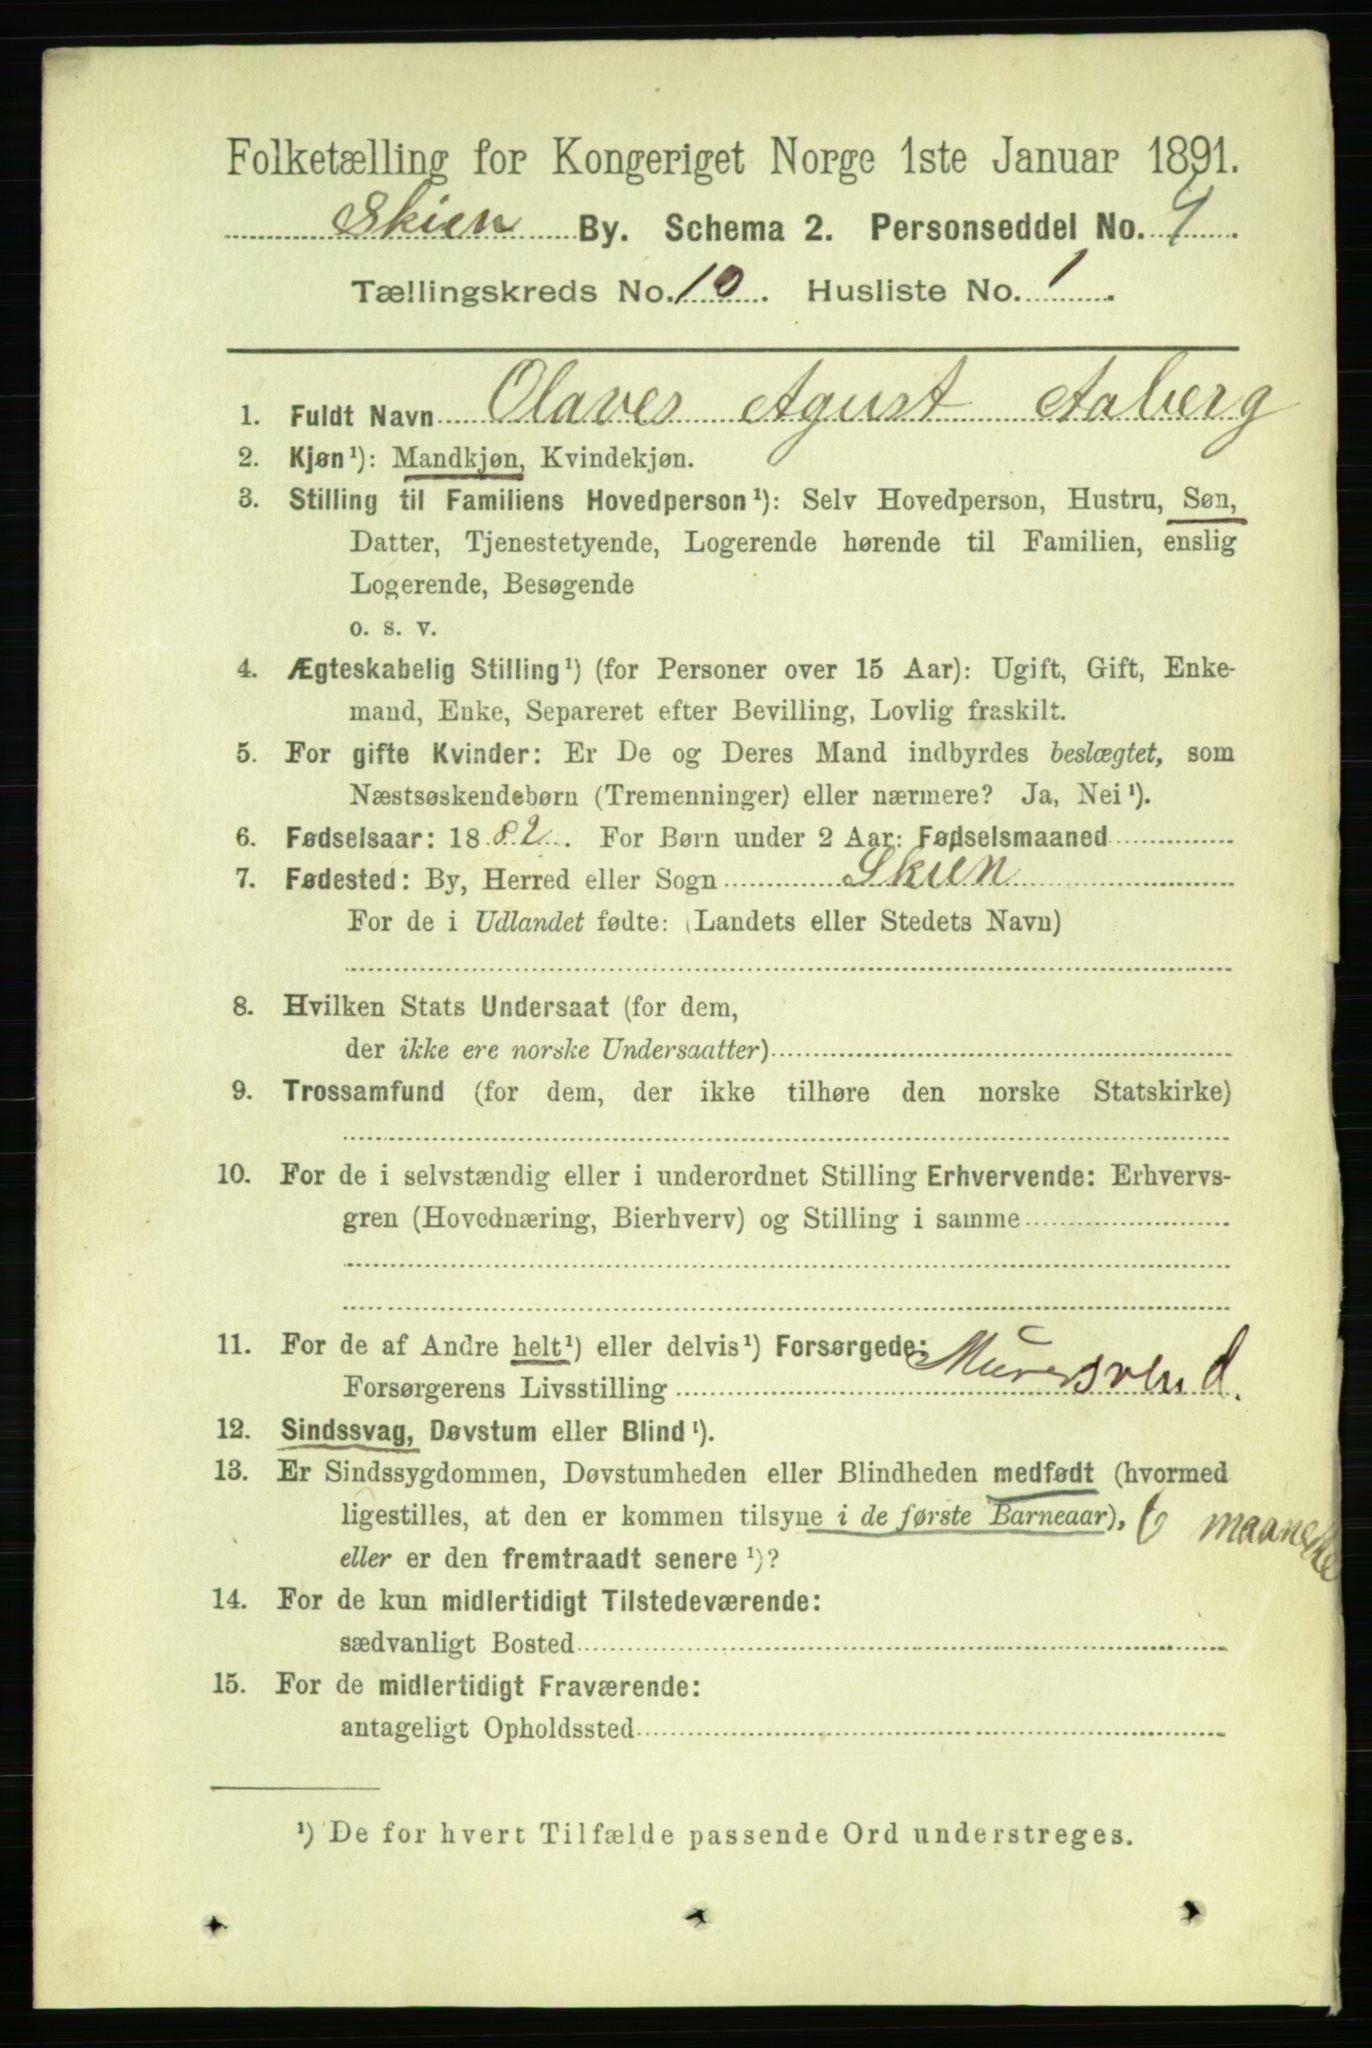 Folketælling for Kongeriget Norge 1ste Januar 1891.
Skien By. Schema 2. Personseddel No. 4
Tællingskreds No. 10. Husliste No. 1.
1. Fuldt Navn Olaves Agust Aaberg
2. Kjøn¹): Mandkjøn, Kvindekjøn.
3. Stilling til Familiens Hovedperson¹): Selv Hovedperson, Hustru, Søn,
Datter, Tjenestetyende, Logerende hørende til Familien, enslig
Logerende, Besøgende
o. s. v.
4. Ægteskabelig Stilling¹) (for Personer over 15 Aar): Ugift, Gift, Enke-
mand, Enke, Separeret efter Bevilling, Lovlig fraskilt.
5. For gifte Kvinder: Er De og Deres Mand indbyrdes beslægtet, som
Næstsøskendebørn (Tremenninger) eller nærmere? Ja, Nei¹).
6. Fødselsaar: 1882. For Børn under 2 Aar: Fødselsmaaned
7. Fødested: By, Herred eller Sogn Skien
For de i Udlandet fødte: (Landets eller Stedets Navn)
8. Hvilken Stats Undersaat (for dem,
der ikke ere norske Undersaatter)
9. Trossamfund (for dem, der ikke tilhøre den norske Statskirke)
10. For de i selvstændig eller i underordnet Stilling Erhvervende: Erhvervs-
gren (Hovednæring, Bierhverv) og Stilling i samme
11. For de af Andre helt¹) eller delvis¹) Forsørgede:
Forsørgerens Livsstilling Mursvend.
12. Sindssvag, Døvstum eller Blind¹).
13. Er Sindssygdommen, Døvstumheden eller Blindheden medfødt (hvormed
ligestilles, at den er kommen tilsyne i de første Barneaar), 6
eller er den fremtraadt senere¹)?
14. For de kun midlertidigt Tilstedeværende:
sædvanligt Bosted
15. For de midlertidigt Fraværende:
antageligt Opholdssted
¹) De for hvert Tilfælde passende Ord understreges.